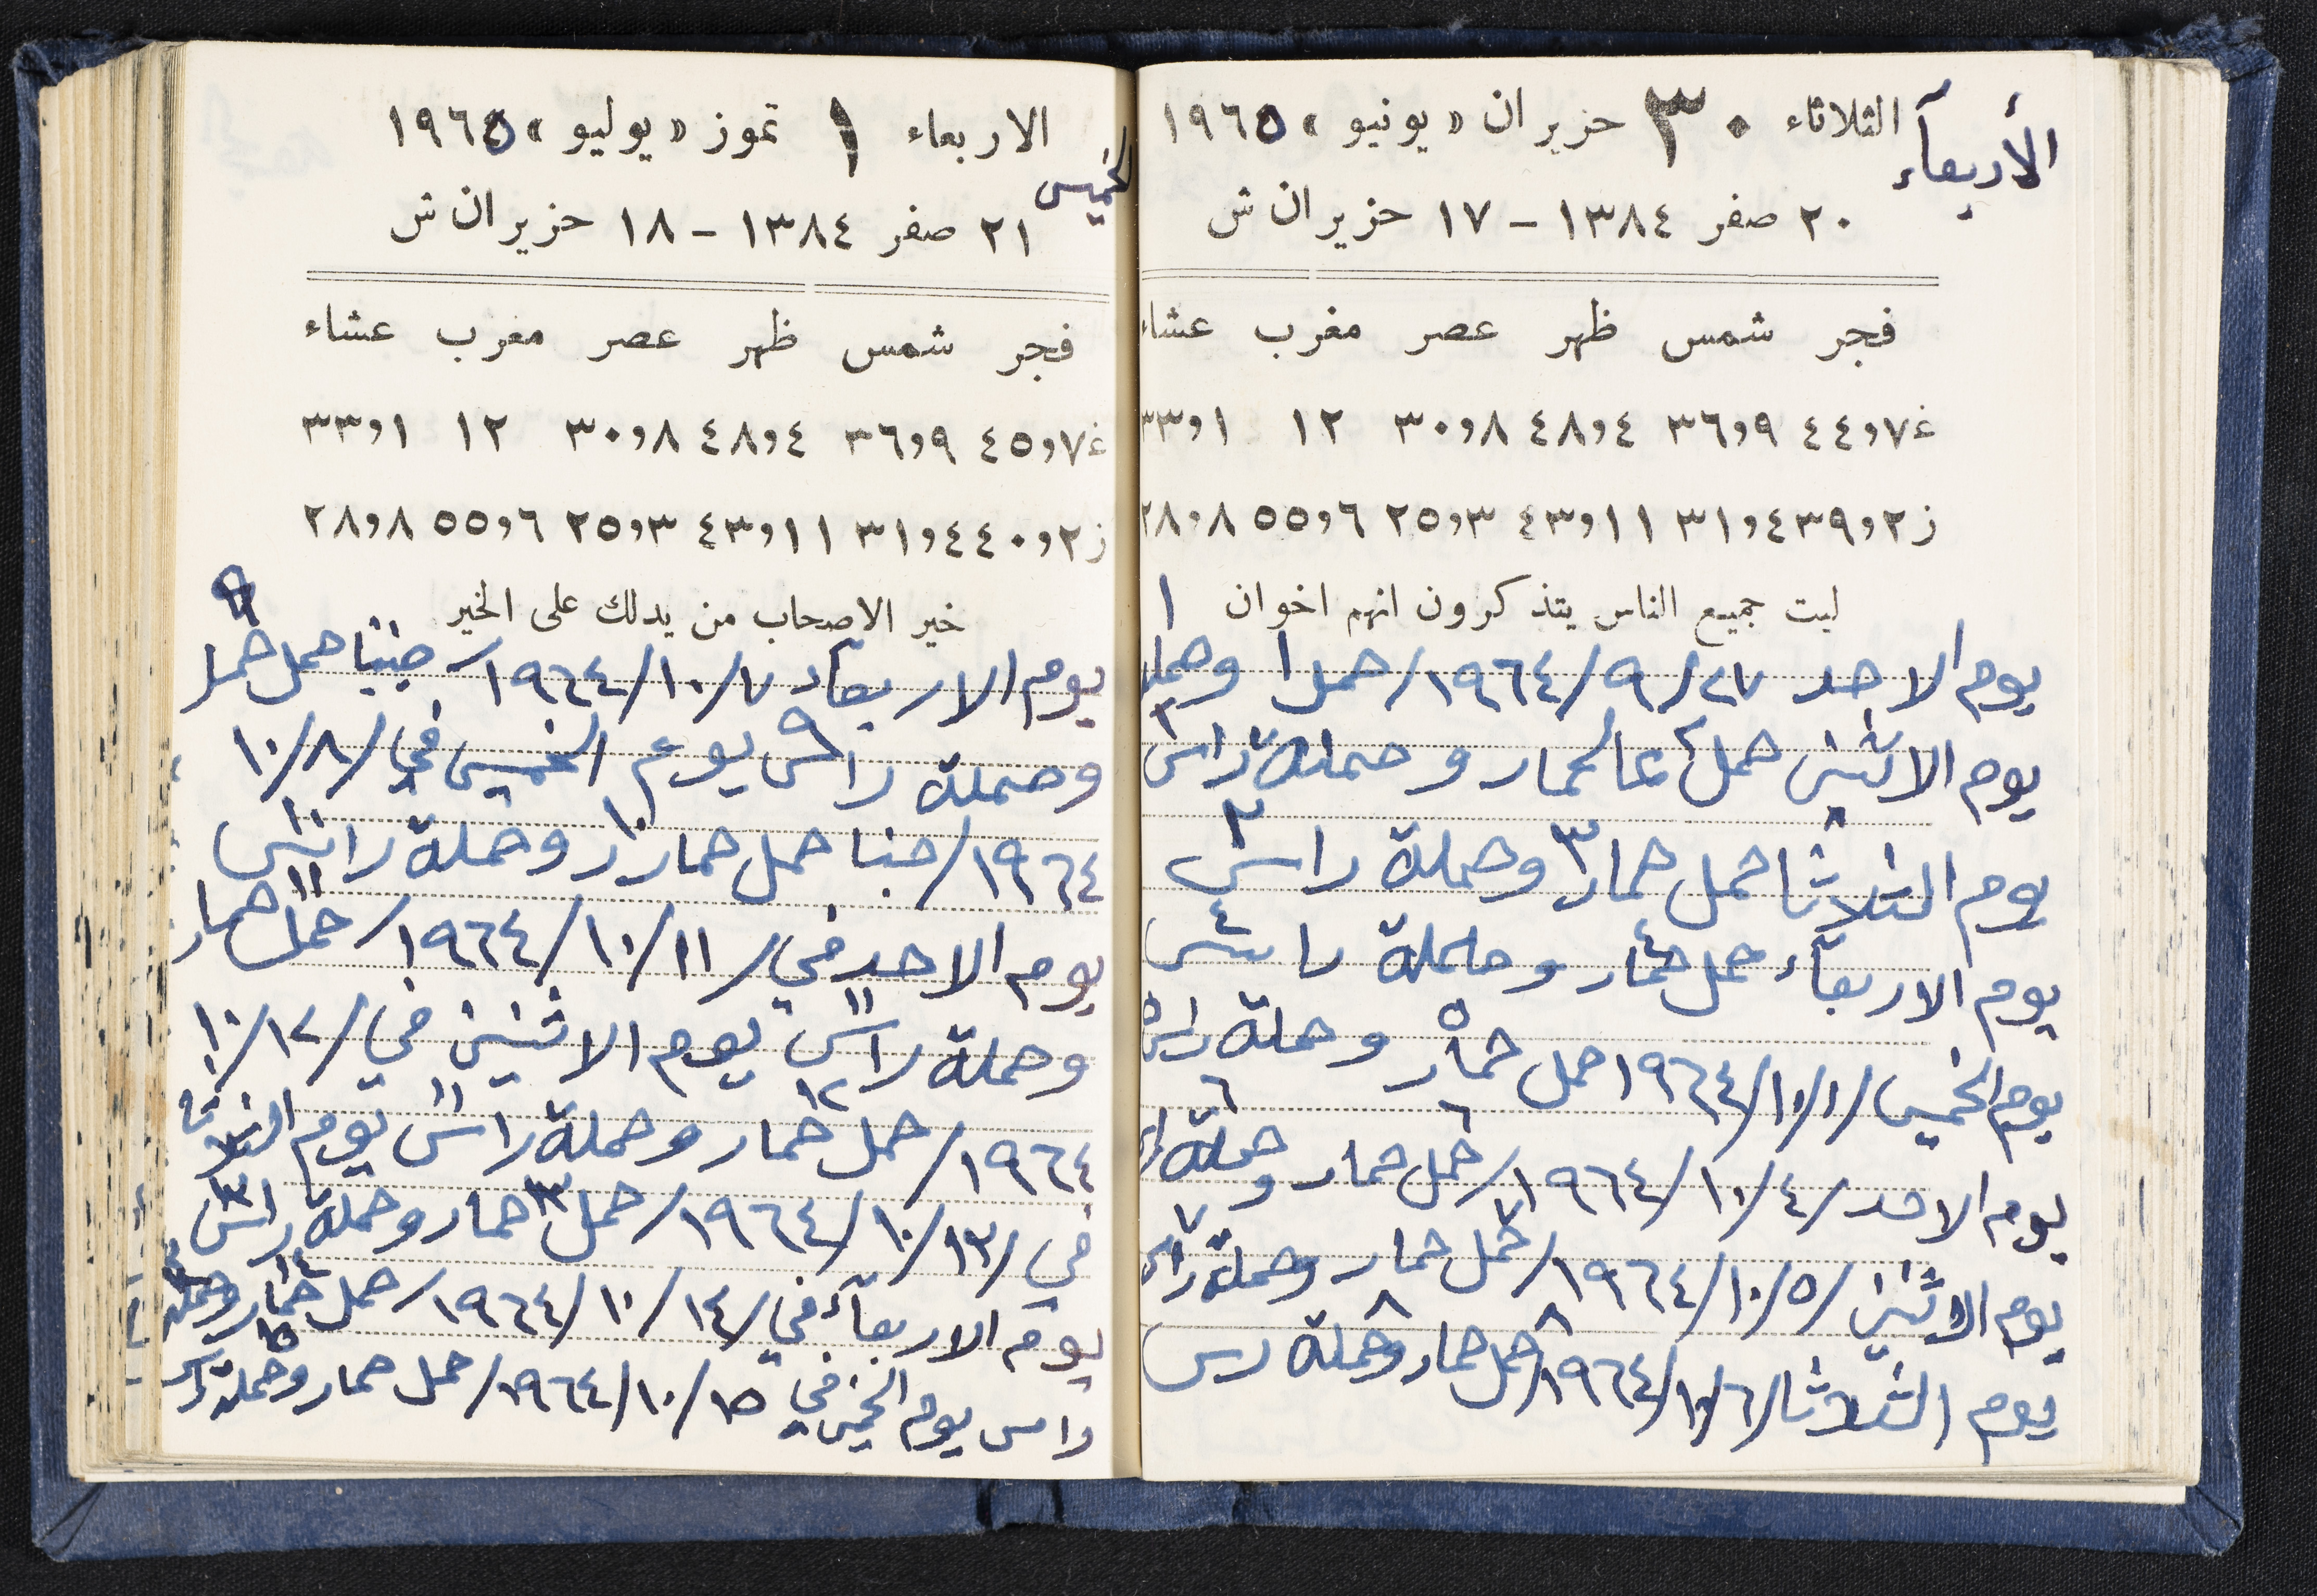 الأربعآء
الثلاثاء ٣٠ حزيران «يونيو» ١٩٦٥
٢٠ صفر ١٣٨٤ - ١٧ حزيران ش
فجر شمس ظهر عصر مغرب عشاء
غ ٧و٤٤ ٩و٣٦ ٤و٤٨ ٨و٣٠ ١٢ ١و٣٣
ز ٢و٣٩ ٤و٣١ ١١و٤٣ ٣و٢٥ ٦و٥٥ ٨و٢٨
ليت جميع الناس يتذكرون انهم اخوان
١
يوم الاحد ٢٧/٩/١٩٦٤/ حمل ١ وحملة
٢ ٢
يوم الاثنين حمل عالحمار وحملة راس
٣ ٣
يوم الثلاثا حمل حمار وحملة راس
٤ ٤
يوم الاربعآء حمل حمار وحملة راس
٥
يوم الخميس/١/١٠/١٩٦٤ حمل حمار وحملة راس
٦ ٦
يوم الاحد/٤/١٠/١٩٦٤/ حمل حمار وحملة
٧ ٧
يوم الاثنين/٥/١٠/١٩٦٤/ حمل حمار وحملة راس
٨ ٨
يوم الثلاثا/٦/١٠/١٩٦٤/ حمل حمار وحملة رس
الاربعاء ١ تموز «يوليو» ١٩٦٥
الخميس
٢١ صفر ١٣٨٤ - ١٨ حزيران ش
فجر شمس ظهر عصر مغرب عشاء
غ ٧و٤٥ ٩و٣٦ ٤و٤٨ ٨و٣٠ ١٢ ١و٣٣
ز ٢و٤٠ ٤و٣١ ١١و٤٣ ٣و٢٥ ٦و٥٥ ٨و٢٨
خير الاصحاب من يدلك على الخير
٩
يوم الاربعآء ٧/١٠/١٩٦٤/ جبنا حمل حمار
٩
وحملة راس يوم الخميس في/٨/١٠
١٠ ١٠
١٩٦٤/ جبنا حمل حمار وحملة راس
١١
يوم الاحد في/١١/١٠/١٩٦٤/ حمل حمار
١١
وحملة راس يوم الاثنين في/١٢/١٠
١٢ ١١
١٩٦٤/ حمل حمار وحملة راس يوم الثلاثا
١٣ ١٣
في/١٣/١٠/١٩٦٤/ حمل حمار وحملة راس
١٤
يوم الاربعآء في/١٤/١٠/١٩٦٤/ حمل حمار وحملة
١٥
راس يوم الخميس في ١٥/١٠/١٩٦٤/ حمل حمار وحملة راس